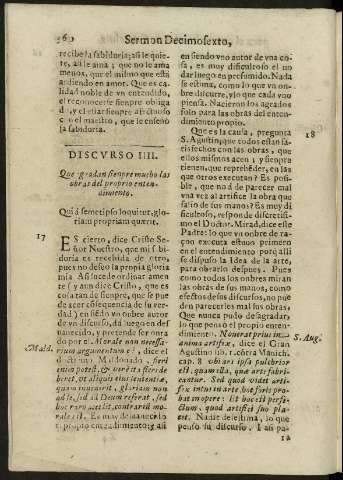 Sermon Decimosexto,
recibe la sabiduria; asi le quie-
te, asi le ama; que no le ama
menos, que el mismo que está
ardiendo en amor. Que es ca-
lidad noble de vn entendido,
el reconocerse siempre obliga
d, y el estar siempre afectuoso
con el maestro, que le enseñó
la sabiduria.
DISCVRSO IIII.
Que gradan siempre mucho las
obras del proprio enten-
dimiento.
Qui à semetipso loquitur, glo-
riam propriam quærit.
17
ES cierto, dice Cristo Se-
ñor Nuestro, que mi sabi-
duria es recebida de otro,
pues no deseo la propia gloria
mia. Asi lo
te (y aun dice Cristo, que es
cosa tan de siempre, que se pue
de sacar consequencia de su ver-
dad) en siédo vn onbre autor
de vn discurso, da luego en des
vanecido, y pretende ser onra
do por el. Morale non necessa-
Mald.
rium argumentum, dice el
doctisimo Maldonado, sed
beret, vt aliquis eius sententiæ,
quam inuenerit, gloriam non
ad se, sed ad Deum referat, sed
hoc raro accidit, contrariũ mo-
rale est. Es muy de la necesario
propio entendimiento; asi
en siendo vno autor de vna co-
sa, es muy dificultoso el no
dar luego en presumido. Nada
se estima, como lo que vn on-
bre discurre, ylo que cada vno
piensa. Nacieron los agrados
solo para las obras del en-
tendimiento propio.
Que es la causa, pregunta
18
S. Agustin, que todos estan sa-
tisfechos con las obras, que
ellos mismos acen; y sienpre
tienen, que reprehẽder, en las
que otros executan? Es posi-
ble, que no á de parecer mal
vna vez al artifice la obra que
salio de sus manos? Es muy di
ficultoso, responde discretisi-
mo el Doctor. Mirad, dice este
Padre: lo que vn onbre de ra-
çon executa estuuo primero
en el entendimiento porq alli
se dispuso la Idea de la arte,
para obrarlo despues. Pues
como todos los onbres miran
las obras de sus manos, como
efectos de sus discursos, no pue
den parecerles mal sus obras,
Que nunca pudo desagradar,
lo que pensó el propio enten-
dimiento. Nouerat prius in
S. Aug.
animo artifex, dice el Gran
Agustino lib. cõtra Manich.
cap. 8 vbi ars ipsa pulchrior
est, quam illa, quæ arte fabri-
cantur. Sed quod videt arti-
fex intus in arte, hoc foris pro-
bat in opere: Et hoc est perfe-
ctum, quod artifici suo pla-
cet. Nadie desestima, lo que
pensó su discurso. I asi pa-
ra